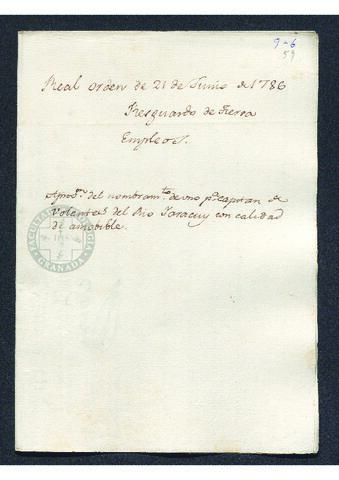 9-6
59
Real orden de 21 de Junio de 1786
Resguardo de tierra
Empleos.
Aprobon. del nombramto. de uno pa. capitan de
Volantes del Rio Yaracuy con calidad
de amovible.
FACULTAD DE TEOLOGIA
GRANADA